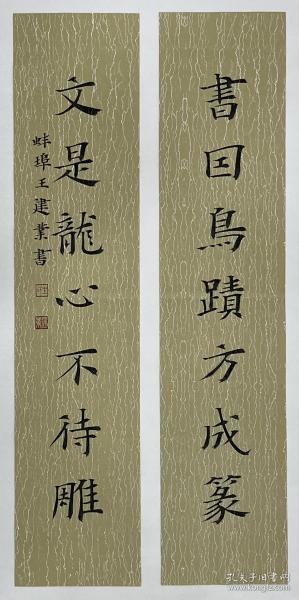 書因鳥蹟方成篆
文是龍心不待雕
蚌埠王建業書
孔夫子旧书网
www.kongfz.com